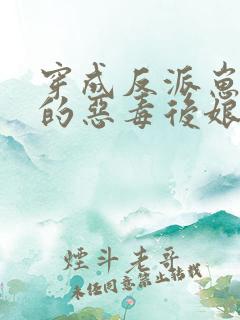 穿成反派崽
的惡毒後娘
煙斗老哥
未經同意禁止轉載